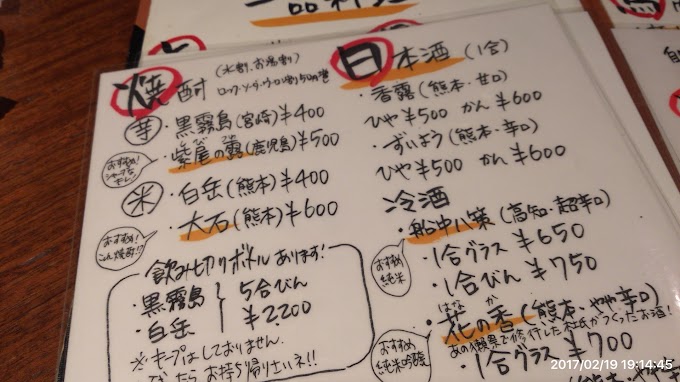 一品料理
焼酎 (水割、お湯割)
ロック・ソーダ・ウーロン割り50円増
芋
・黒霧島(宮崎)¥400
・紫尾の露(鹿児島)¥500
おすすめ!
シャープなキレ!
米
・白岳(熊本)¥400
・大石(熊本)¥600
おすすめ!
これ焼酎!?
飲みキリボトルあります!
・黒霧島
・白岳
5合びん
¥2,200
※キープはしておりません。
お持ち帰り
日本酒(1合)
・香露(熊本・甘口)
ひや¥500 かん¥600
・ずいよう(熊本・辛口)
ひや¥500 かん¥600
冷酒
・船中八策(高知・超辛口)
おすすめ
純米
・1合グラス ¥650
・1合びん ¥750
はな か
・花の香(熊本・やや辛口)
あの獺祭で修行した杜氏がつくったお酒!
おすすめ
純米吟醸
・1合グラス ¥700
2017/02/19 19:14:45